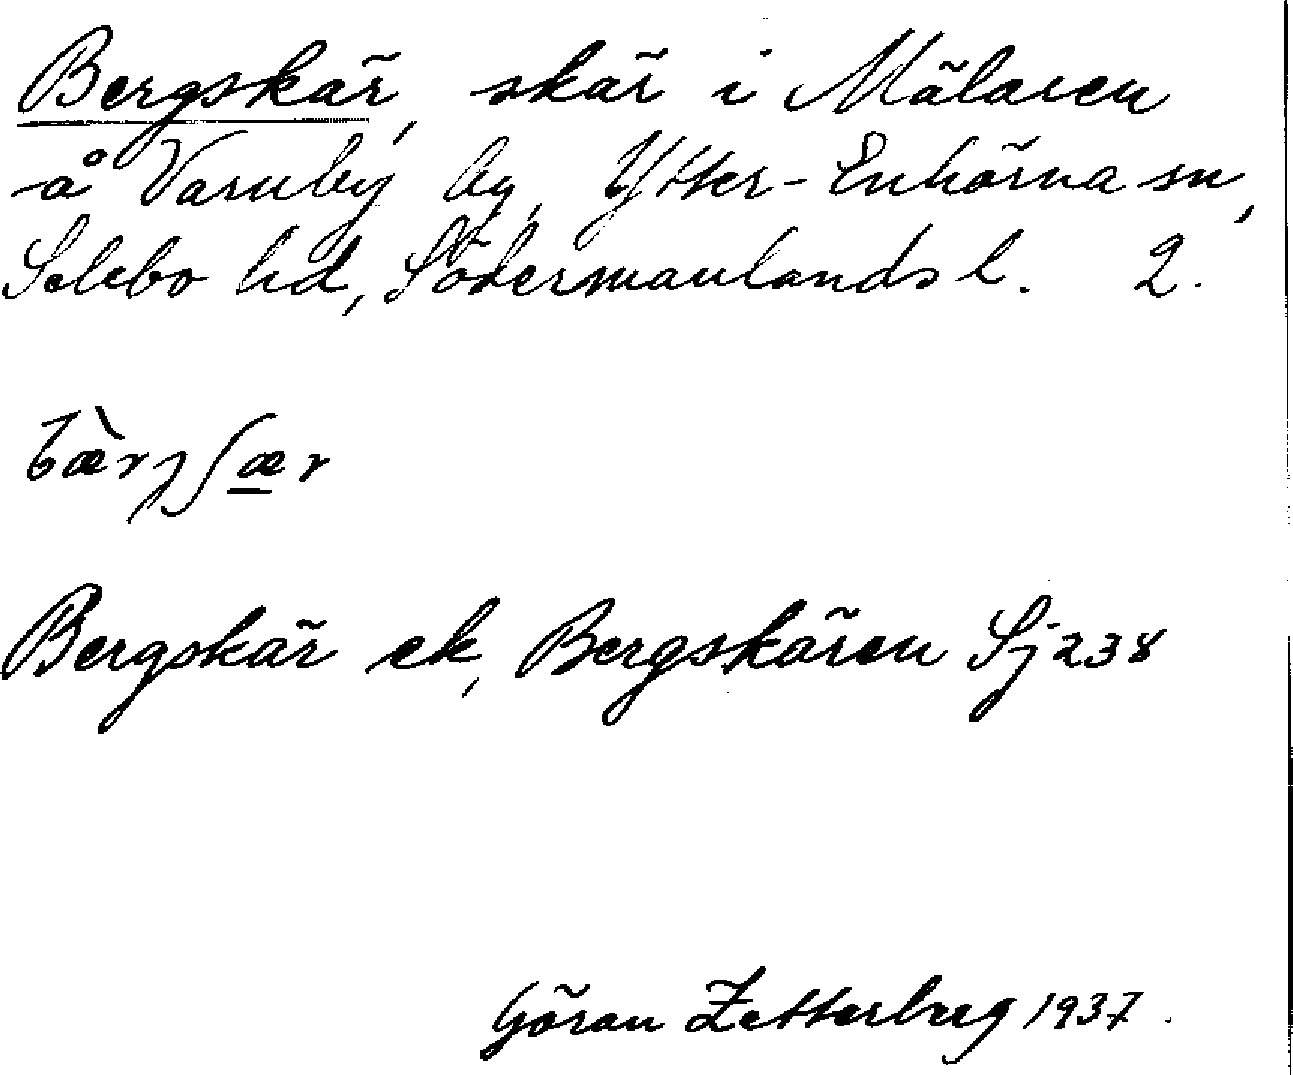 Bergskär, skär i Mälaren
å Varnby by, Ytter-Enhörna sn,
Selebo hd, Södermanlands l. 2.
Bergskär ek, Bergskären Sj 238
Göran Zetterberg 1937.